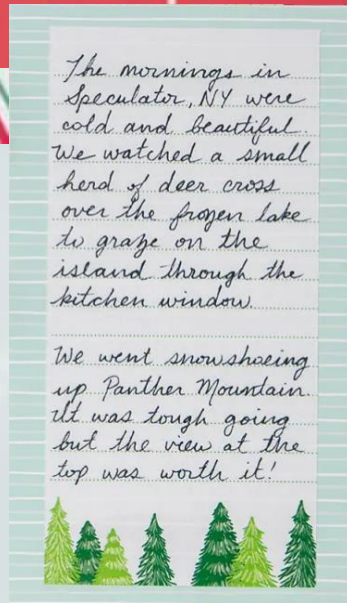 The mornings in
Speculator, NY were
cold and beautiful.
We watched a small
herd of deer cross
over the frozen lake
to graze on the
island through the
kitchen window.
We went snowshoeing
up Panther Mountain
It was tough going
but the view at the
top was worth it!